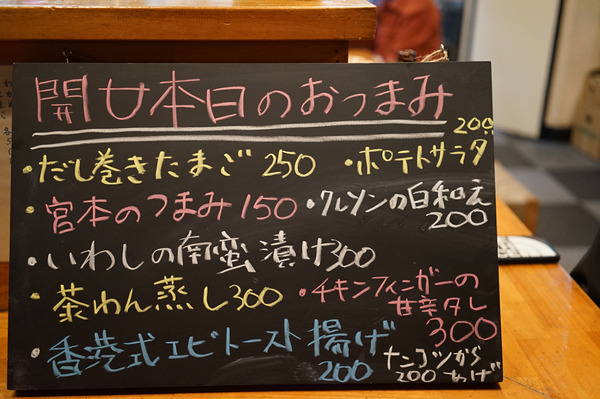 開女本日のおつまみ
・だし巻きたまご 250
・ポテトサラダ 200
・宮本のつまみ 150
・クルソンの白和え 200
・いわしの南蛮漬け300
・茶わん蒸し300
・チキンフィンガーの
甘辛タレ
300
・香港式エビトースト揚げ
200
・ナンコツから
あげ 200